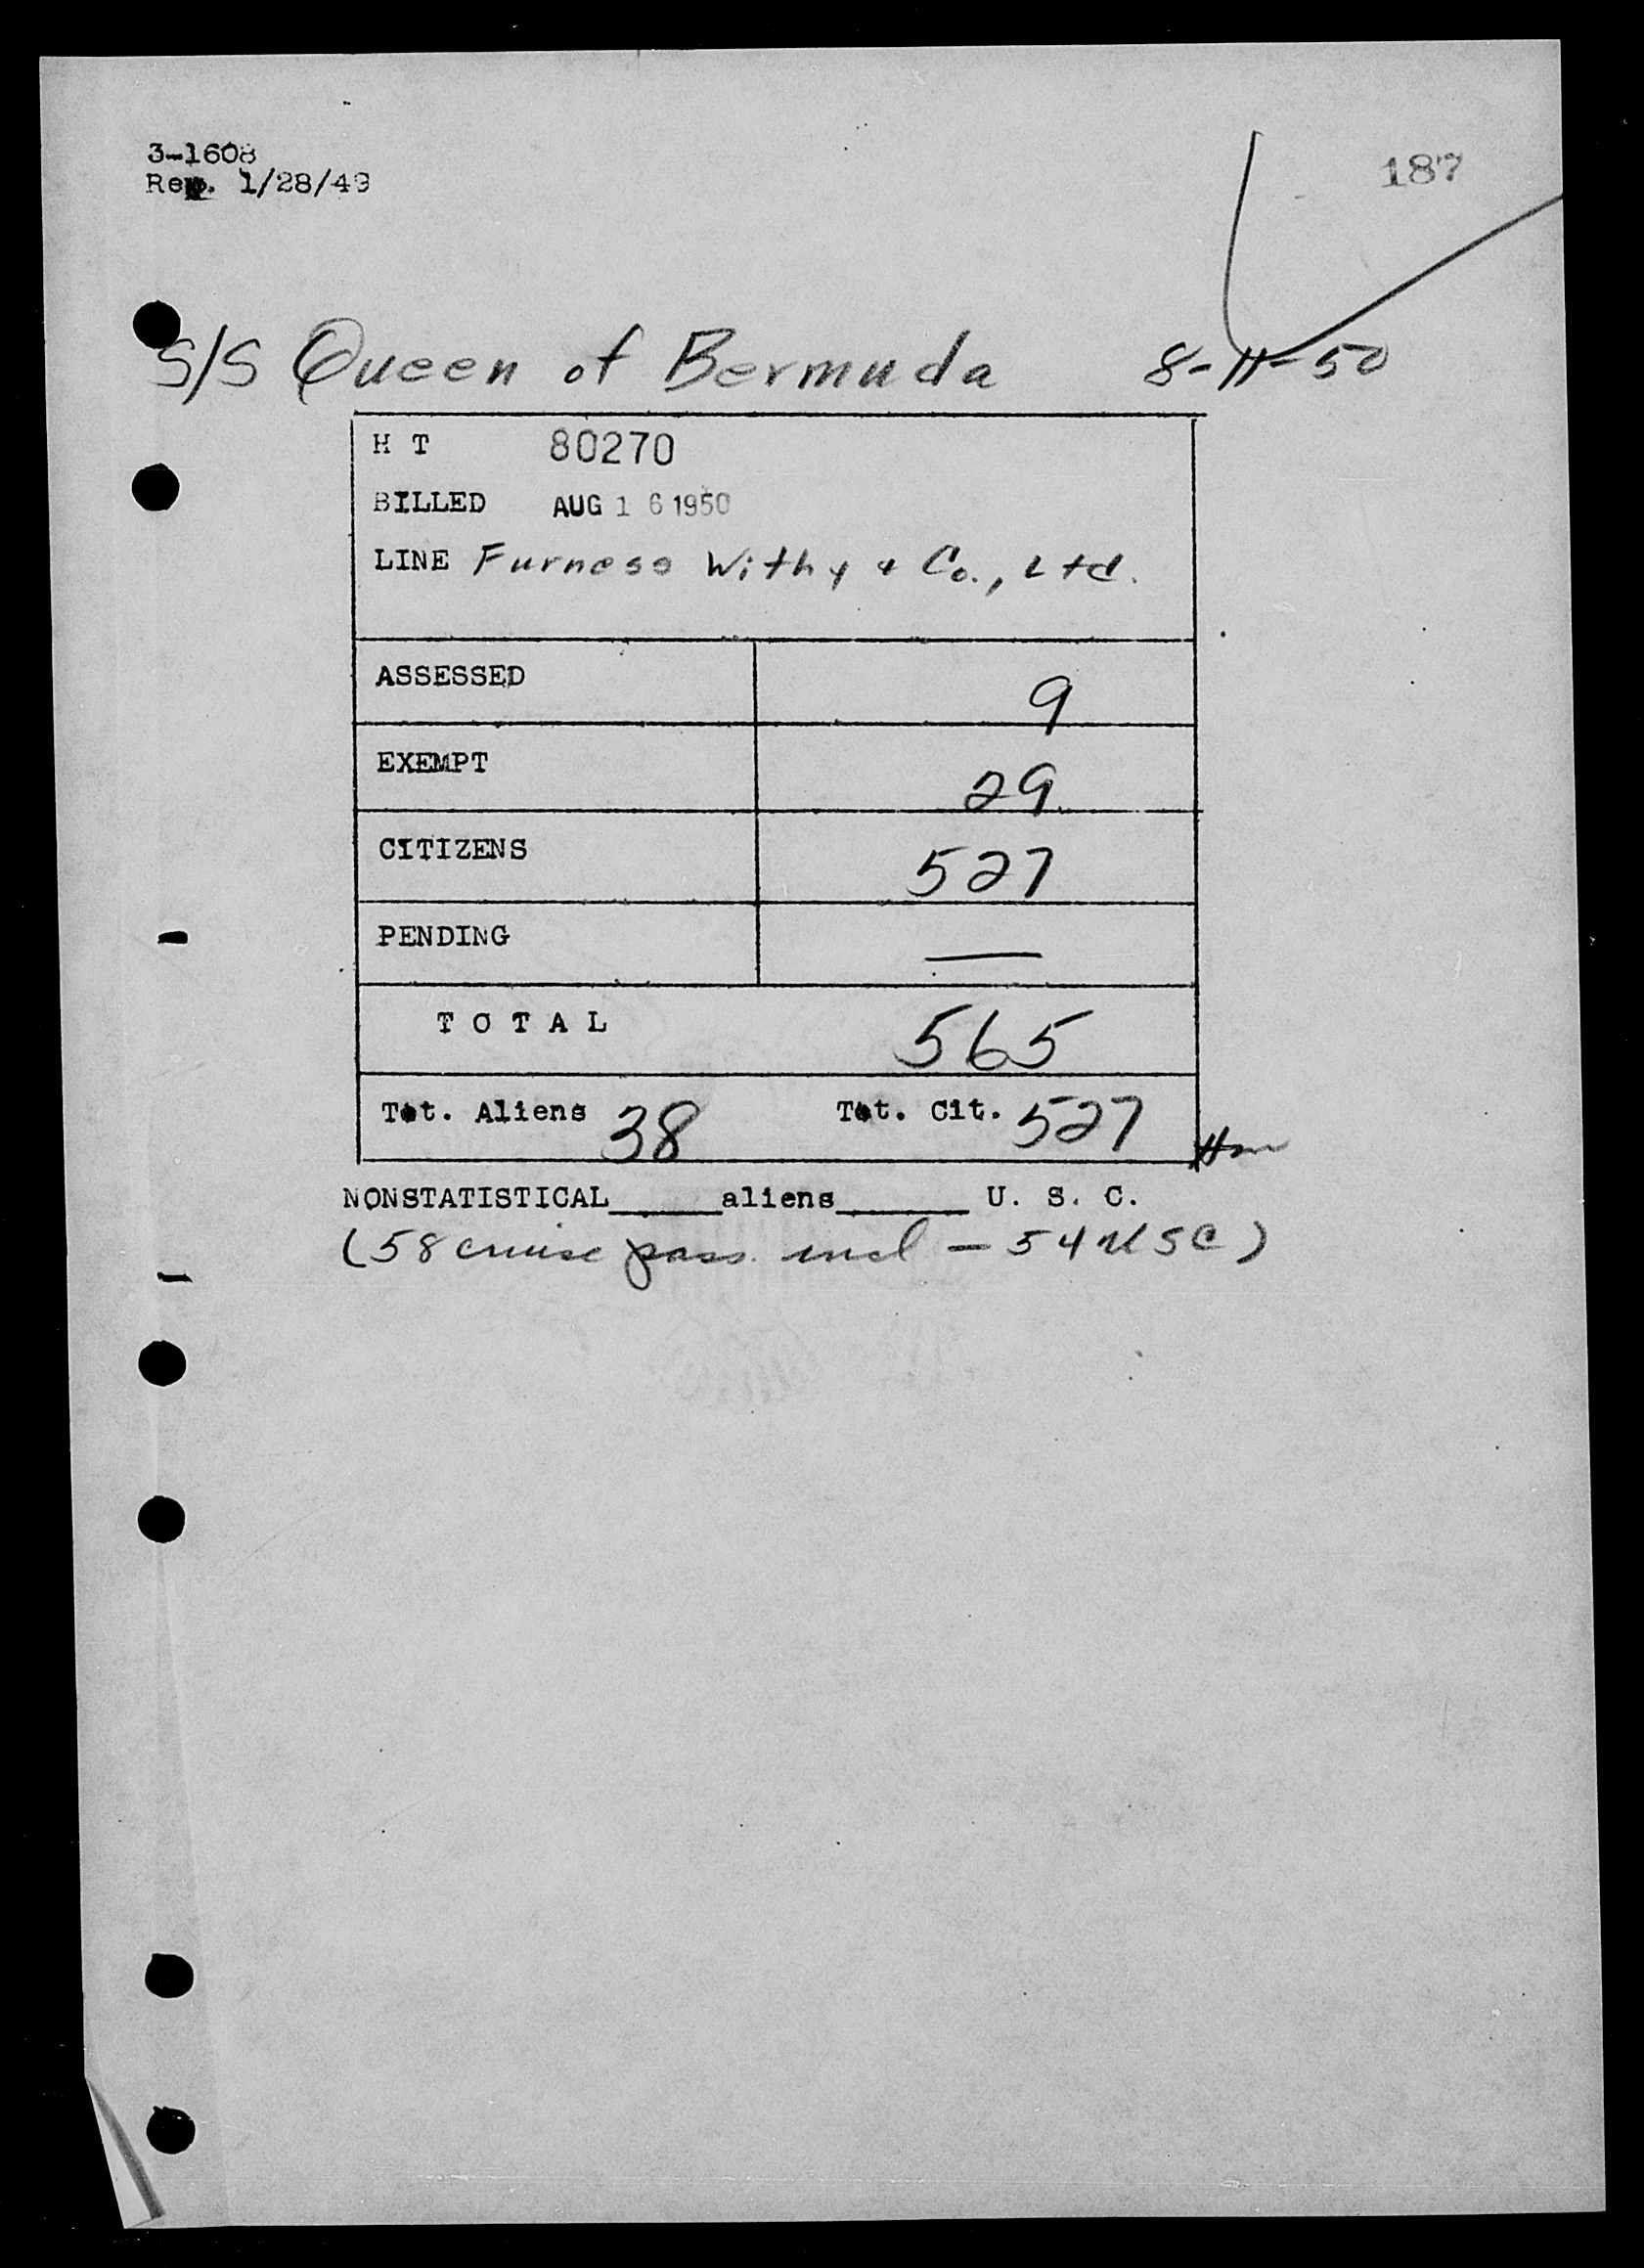 3-1608
Rep. 1/28/49
187
S/S Queen of Bermuda 8-11-50
H T 80270
BILLED AUG 16 1950
LINE Furness Withy & Co., Ltd.
ASSESSED 9
EXEMPT 29
CITIZENS 527
PENDING —
TOTAL 565
Tot. Aliens 38 Tot. Cit. 527
NONSTATISTICAL_____aliens______ U. S. C.
(58 cruise pass. incl — 54 USC)